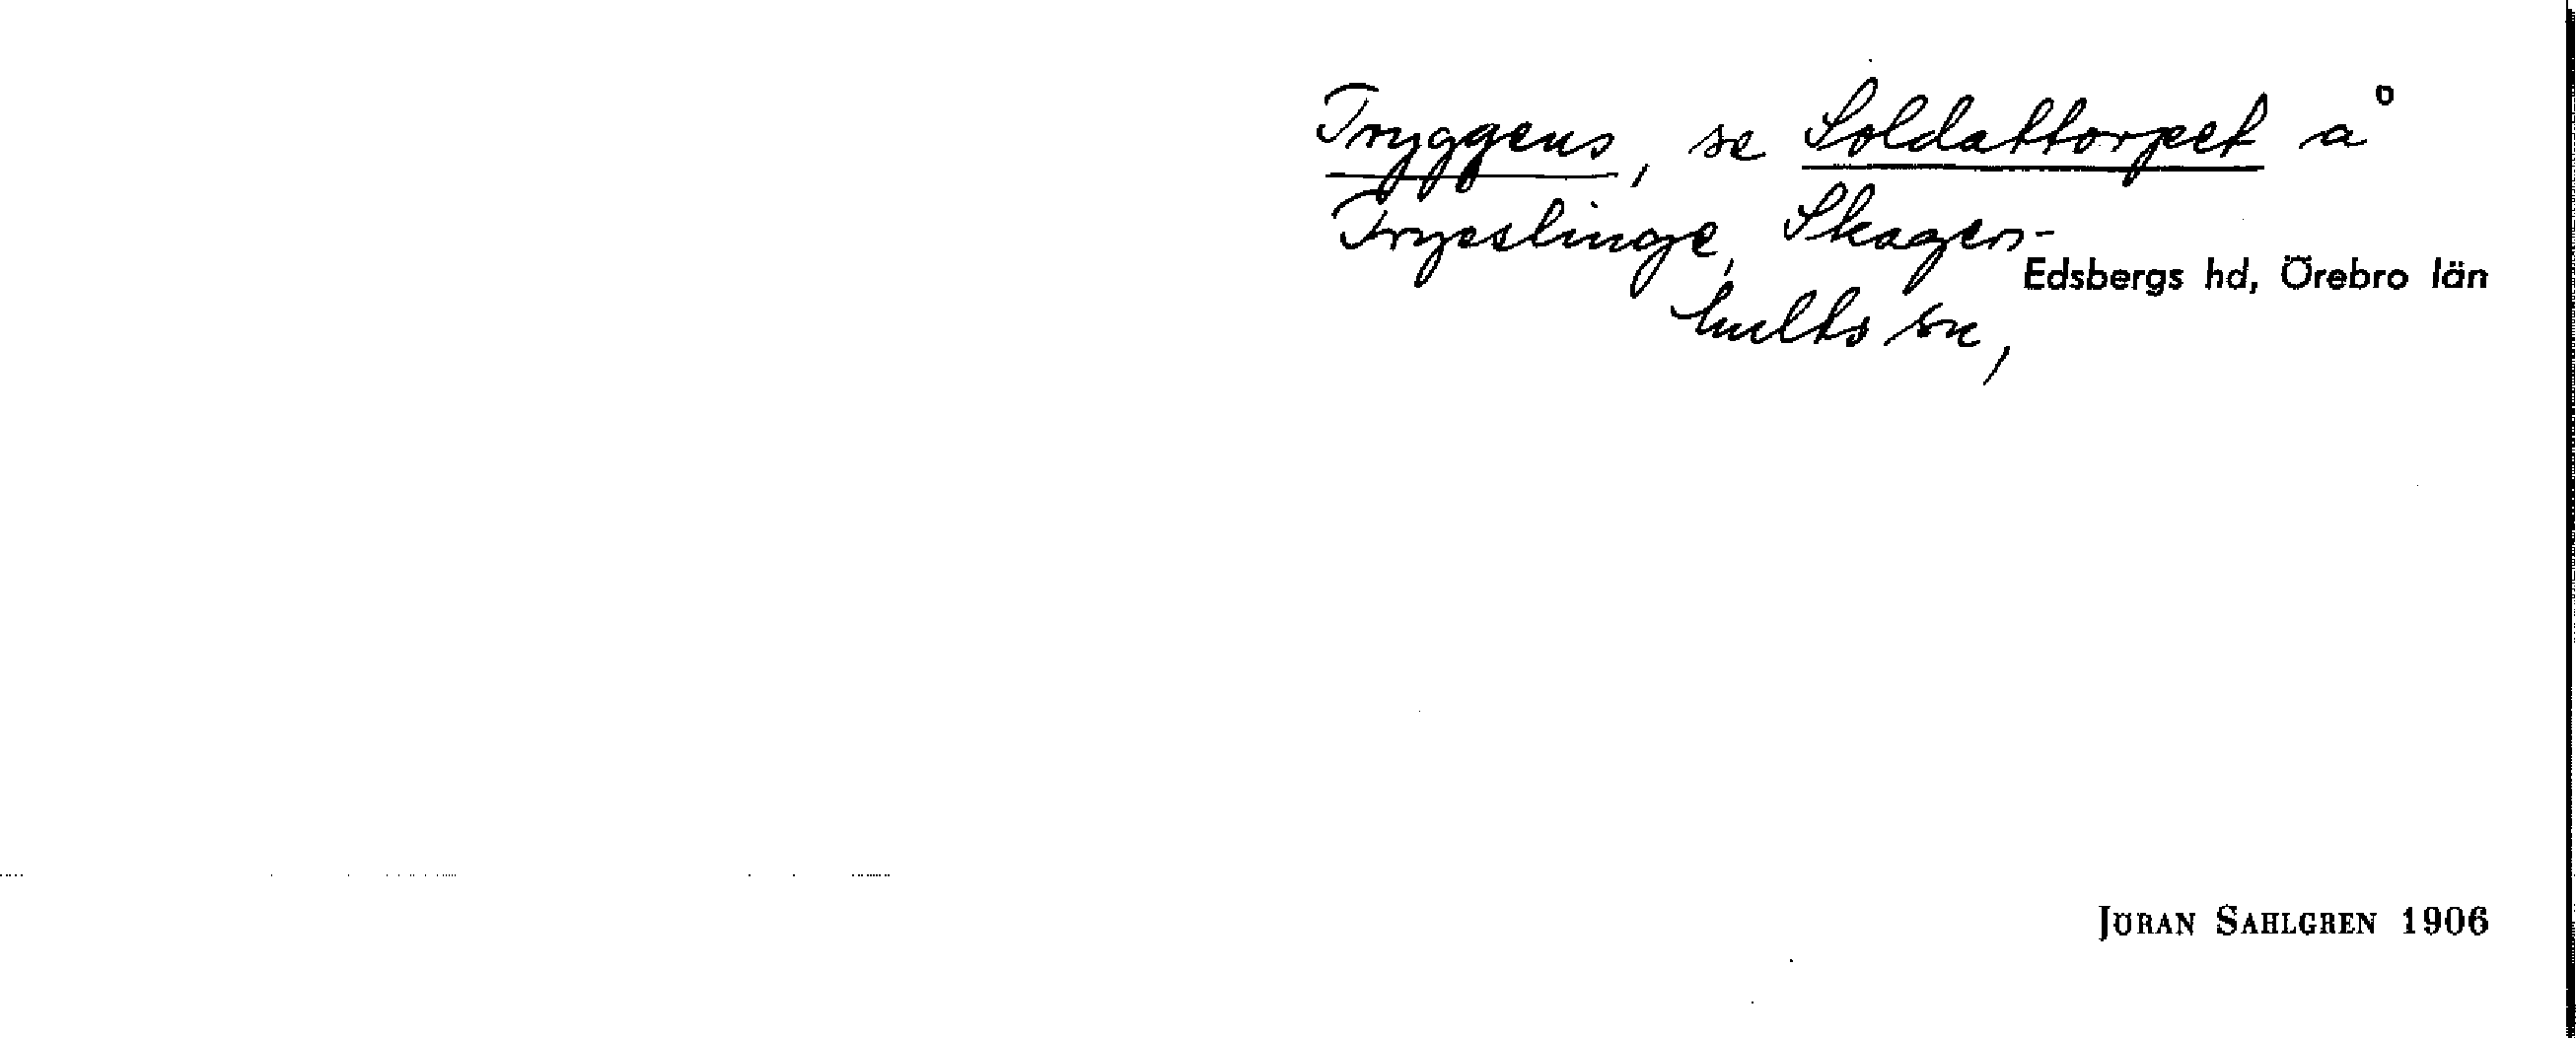 Tryggens, se Soldattorpet å
Fryeslinge, Skagers-
hults sn,
Edsbergs hd, Örebro län
JÖRAN SAHLGREN 1906